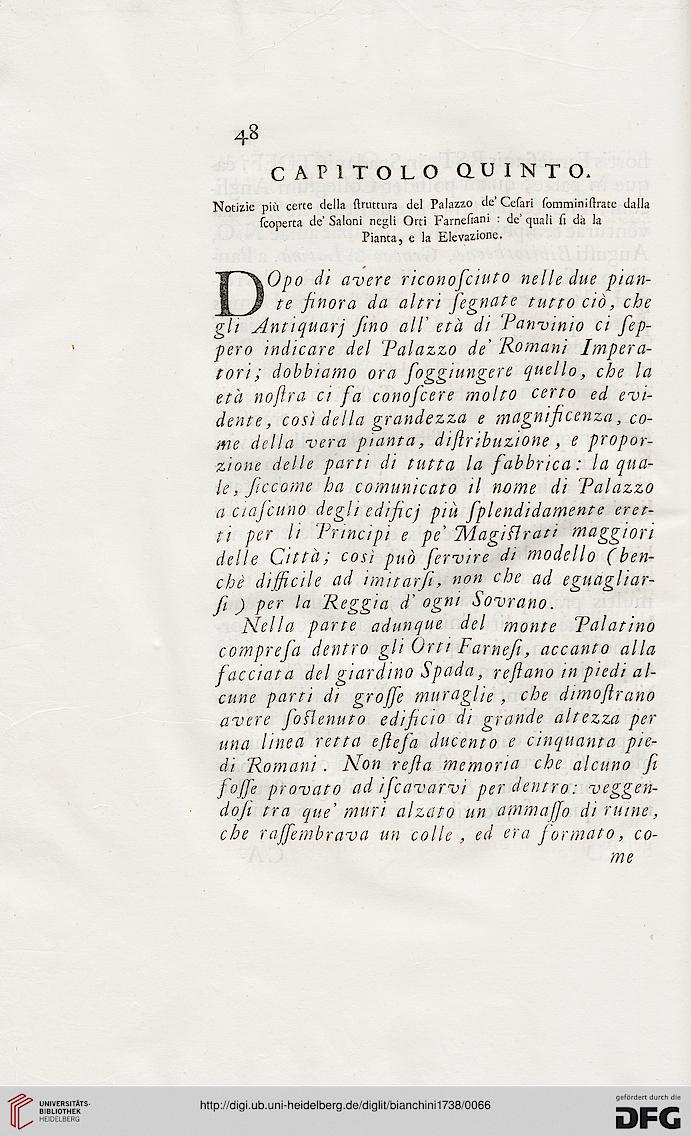 48
CAPITOLO QUINTO.
Notizie più certe della ſtruttura del Palazzo de' Ceſari ſomminiſtrate dalla
ſcoperta de' Saloni negli Orti Farneſiani : de' quali ſi dà la
Pianta, e la Elevazione.
DOpo di avere riconoſciuto nelle due pian-
te finora da altri ſegnate tutto ciò, che
gli Antiquarj ſino all' età di Panvinio ci ſep-
pero indicare del Palazzo de' Romani Impera-
tori; dobbiamo ora ſoggiungere quello, che la
età noſtra ci fa conoſcere molto certo ed evi-
dente, così della grandezza e magnificenza, co-
me della vera pianta, diſtribuzione, e propor-
zione delle parti di tutta la fabbrica: la qua-
le, ſiccome ha comunicato il nome di Palazzo
a ciaſcuno degli edificj più ſplendidamente eret-
ti per li Principi e pe' Magiſtrati maggiori
delle Città; così può ſervire di modello (ben-
chè difficile ad imitarſi, non che ad eguagliar-
ſi ) per la Reggia d' ogni Sovrano.
Nella parte adunque del monte Palatino
compreſa dentro gli Orti Farneſi, accanto alla
facciata del giardino Spada, reſtano in piedi al-
cune parti di groſſe muraglie, che dimoſtrano
avere ſoſtenuto edificio di grande altezza per
una linea retta eſteſa ducento e cinquanta pie-
di Romani. Non reſta memoria che alcuno ſi
foſſe provato ad iſcavarvi per dentro: veggen-
doſi tra que' muri alzato un ammaſſo di ruine,
che raſſembrava un colle, ed era formato, co-
me
UNIVERSITÄTS-
BIBLIOTHEK
HEIDELBERG
http://digi.ub.uni-heidelberg.de/diglit/bianchini1738/0066
gefördert durch die
DFG